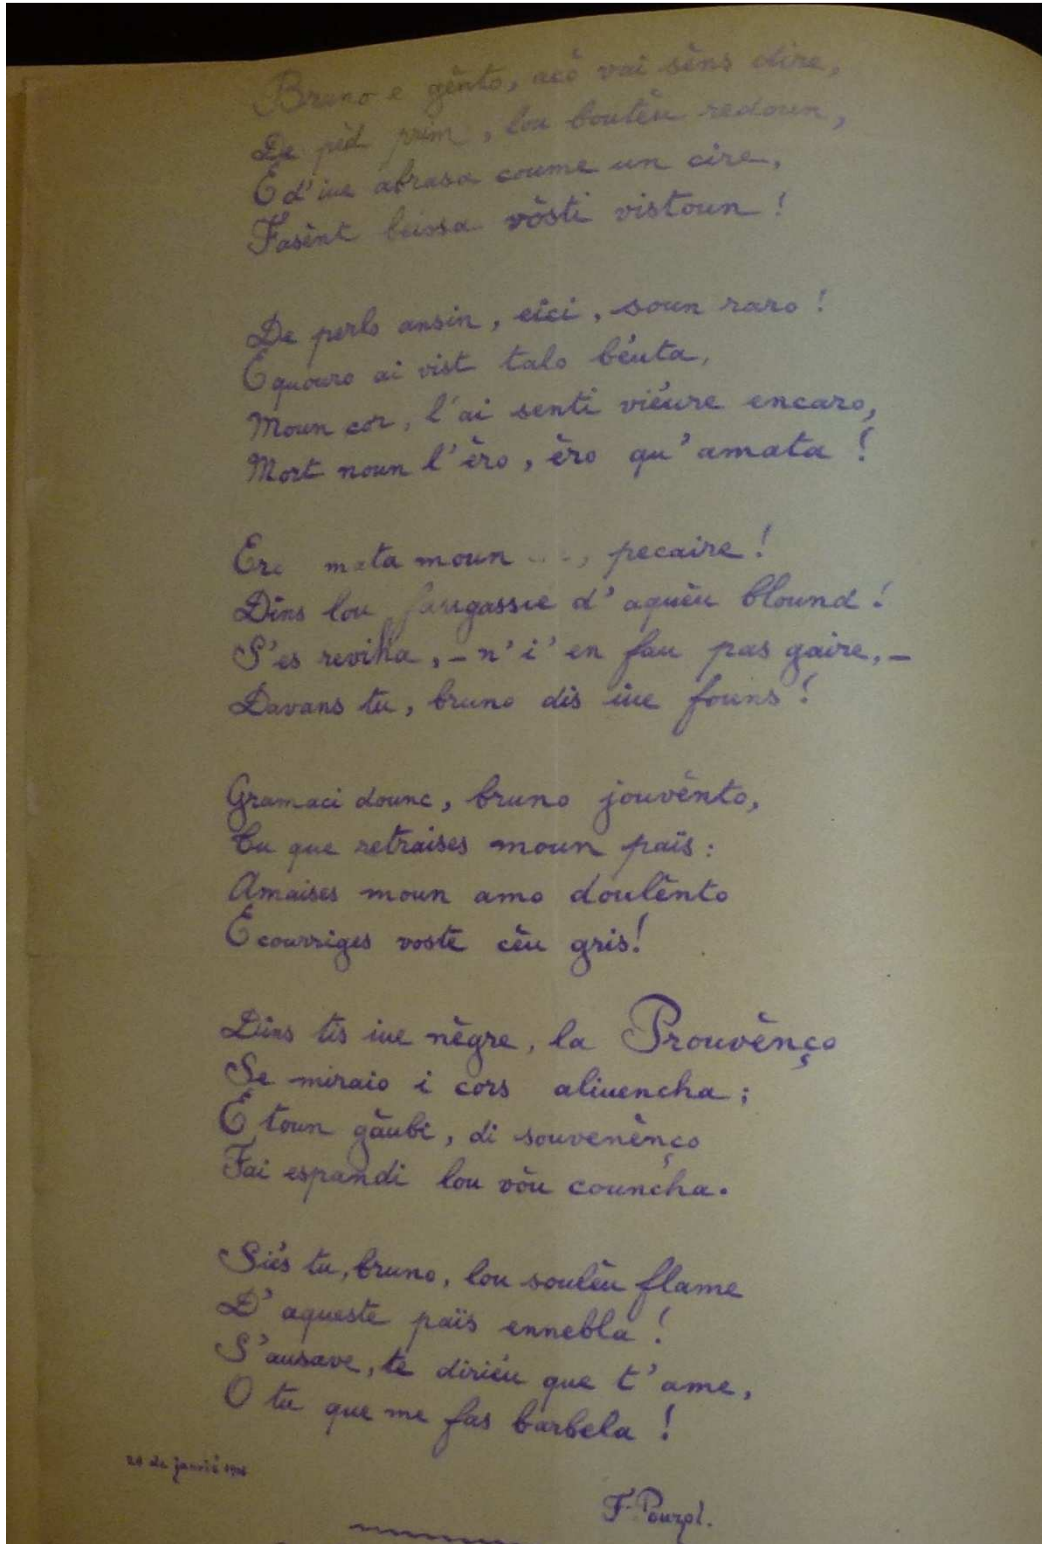 Bruno e gènto, acò vai sèns dire,
De pèd prim, lou boutèu redoun,
E d'iue abrasa coume un cire,
Fasènt beissa vòsti vistoun !
De perlo ansin, eici, soun raro !
E quouro ai vist talo béuta,
Moun cor, l'ai senti viéure encaro,
Mort noun l'èro, èro qu'amata !
Ero mata moun pecaire !
Dins lou d'aquèu blound !
S'es reviha, - n'i'en fau pas gaire, -
Davans tu, bruno dis iue founs !
Gramaci dounc, bruno jouvènto,
Tu que retraises moun païs :
Amaises moun amo doulènto
E courriges voste cèu gris !
Dins tis iue nègre, la Prouvènço
Se miraio i cors aliuencha ;
E toun gàubi, di souvenènço
Fai espandi lou vòu councha.
Siés tu, bruno, lou soulèu flame
D'aqueste païs ennebla !
S'ausave, te diriéu que t'ame,
O tu que me fas barbela !
de janvié
F. Pourpl.